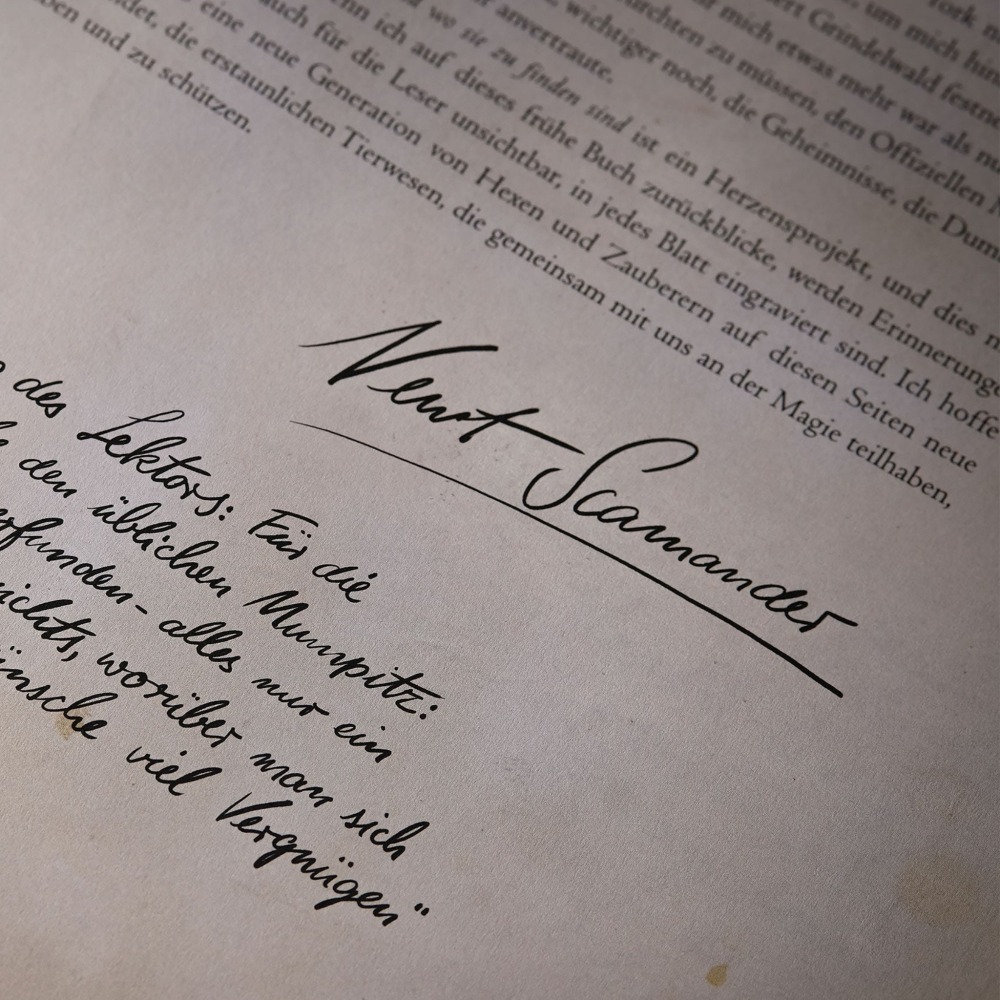 York
um mich hin
ert Grindelwald festne
mich etwas mehr war als nu
urchten zu müssen, den Offiziellen
wichtiger noch, die Geheimnisse, die Dum
r anvertraute.
wo sie zu finden sind ist ein Herzensprojekt, und dies
nn ich auf dieses frühe Buch zurückblicke, werden Erinnerunge
auch für die Leser unsichtbar, in jedes Blatt eingraviert sind. Ich hoffe
eine neue Generation von Hexen und Zauberern auf diesen Seiten neue
det, die erstaunlichen Tierwesen, die gemeinsam mit uns an der Magie teilhaben,
ben und zu schützen.
Newt Scamander
des Lektors: Für die
den üblichen Mumpitz:
erfunden- alles nur ein
nichts, worüber man sich
ünsche viel Vergnügen"